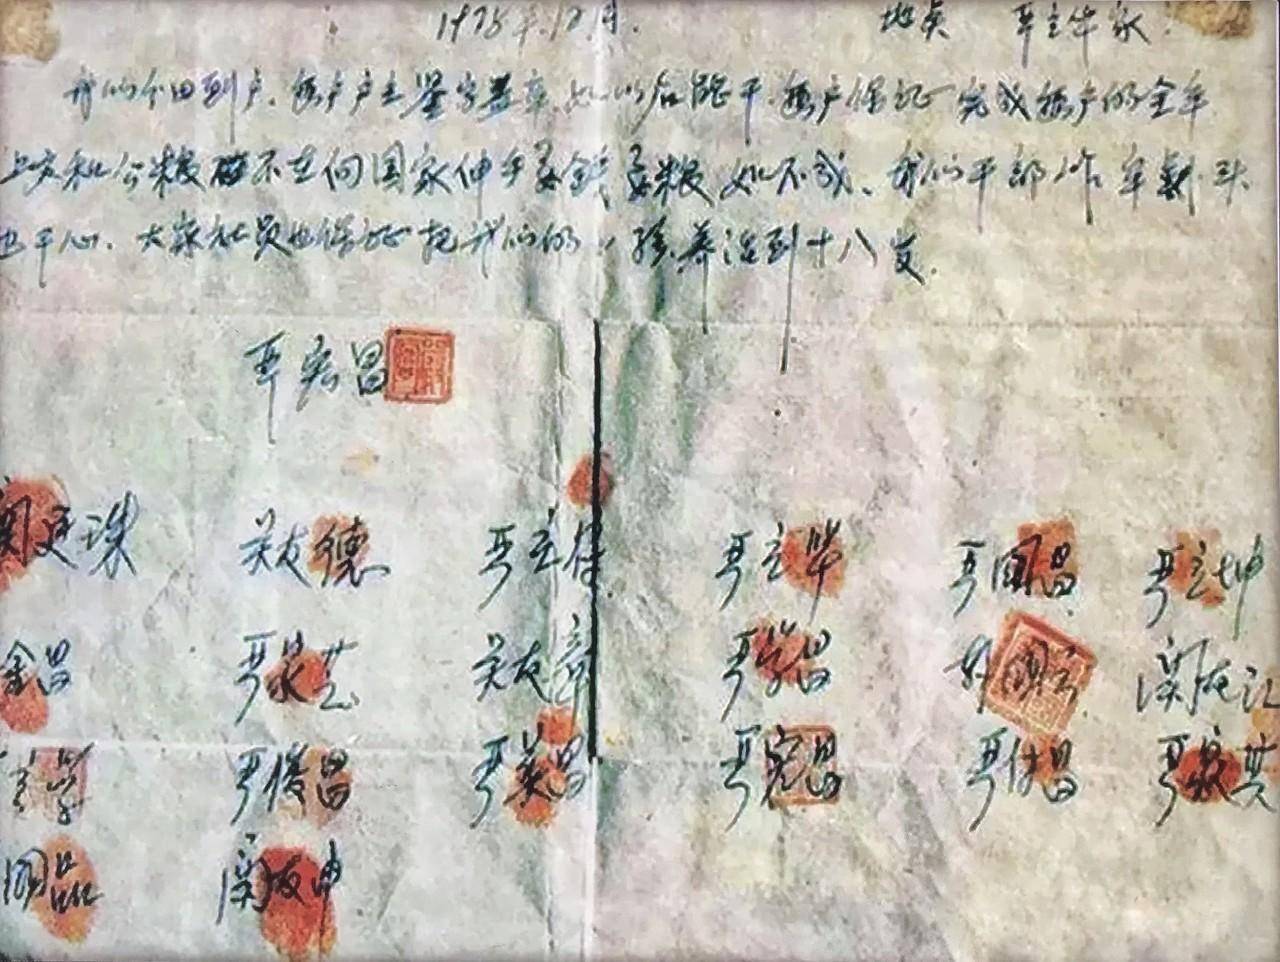 1978年12月. 地点 严立华家.
我们分田到户.每户户主签字盖章.如以后能干.每户保证完成每户的全年
上交和公粮不在向国家伸手要钱要粮如不成、我们干部作牢刹头
也干心.大家社员也保证把我们的小孩养活到十八岁.
严宏昌
关廷珠 关友德 严立符 严立华 严国昌 严立坤
金昌 严家芝 关友章 严学昌 国云 关友江
立学 严俊昌 严美昌 严宏昌 严付昌 严家其
国品 关友申